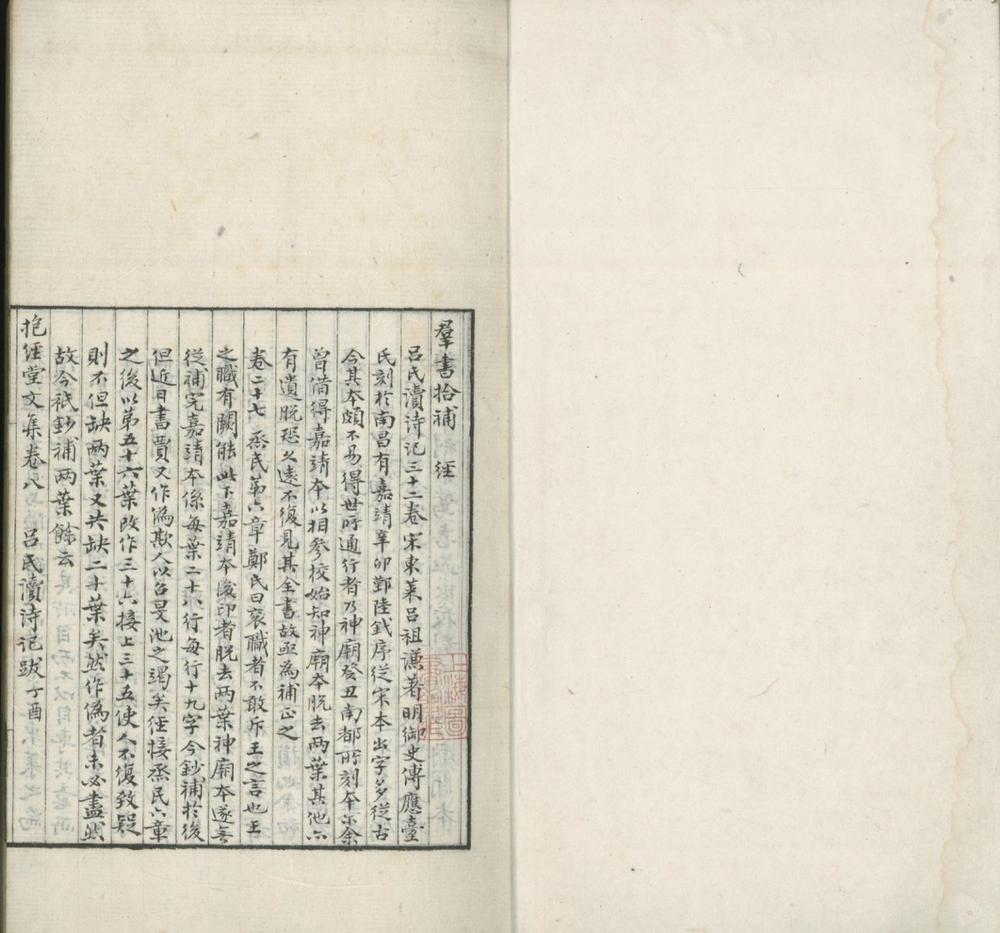 羣書拾補 經
呂氏讀诗记三十二卷宋東萊呂祖謙著明御史傅應臺
氏刻於南昌有嘉靖辛卯鄞陸釴序從宋本出字多從古
今其本頗不易得世所通行者乃神廟癸丑南都所刻本尓余
曾借得嘉靖本以相参校始知神廟本脱去兩葉其他亦
有遺脱恐久遠不復見其全書故亟為補正之
卷二十七 烝民第六章鄭氏曰衮職者不敢斥王之言也王
之職有闕能 此下嘉靖本後印者脱去两葉神廟本遂無
從補完嘉靖本係每葉二十八行每行十九字今鈔補於後
但近日書賈又作偽欺人以召旻池之竭矣经接烝民六章
之後以第五十六葉改作三十六接上三十五使人不復致疑
則不但缺两葉又共缺二十葉矣然作偽者未必盡然
故今衹鈔補两葉餘云
抱经堂文集卷八 呂氏讀诗记跋 丁酉